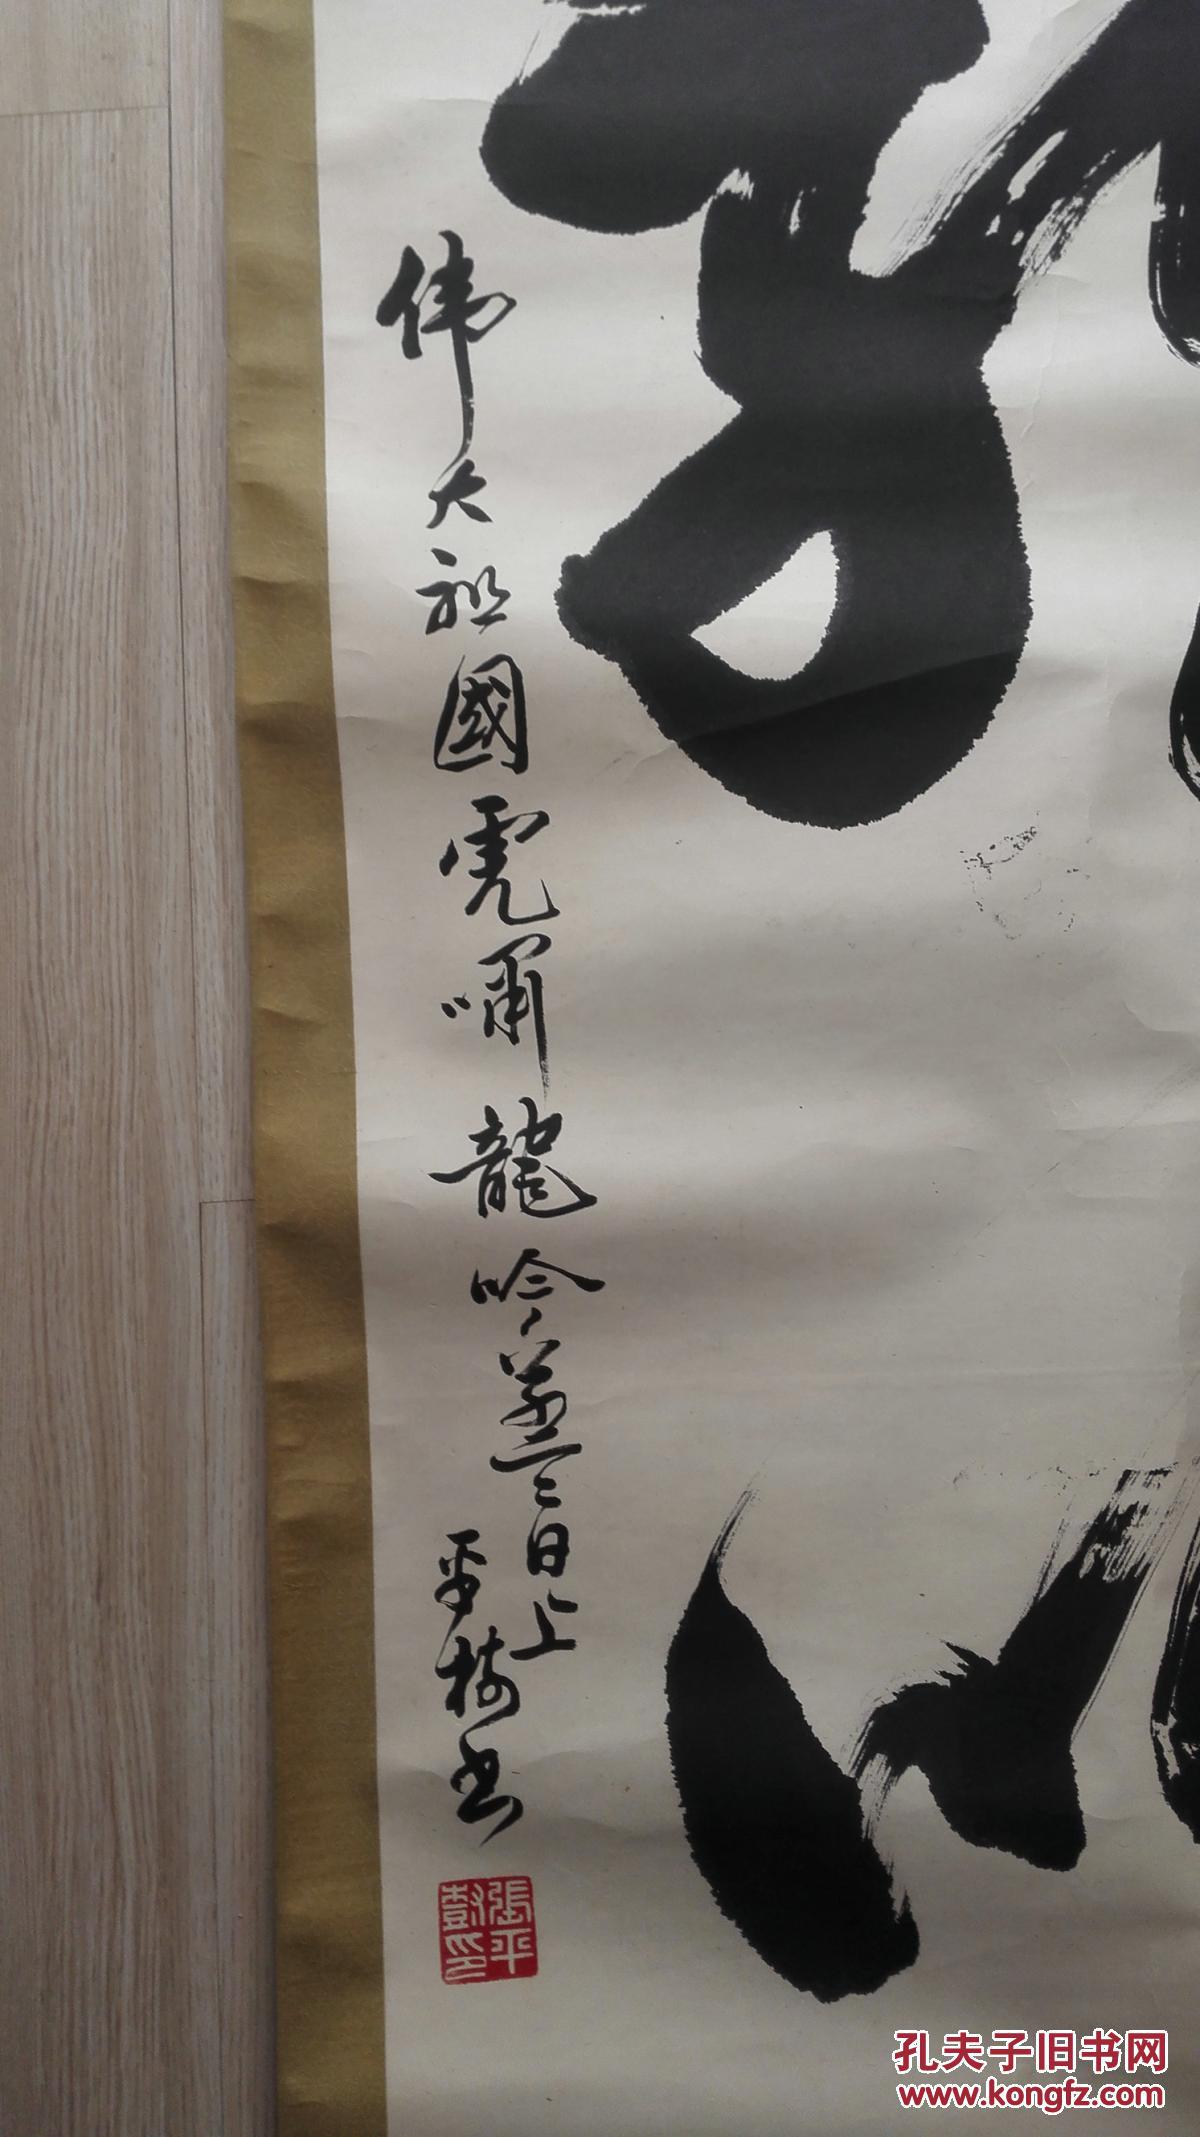 伟大祖國虎嘯龍吟蒸蒸日上
平樹书
張平
樹印
孔夫子旧书网
www.kongfz.com